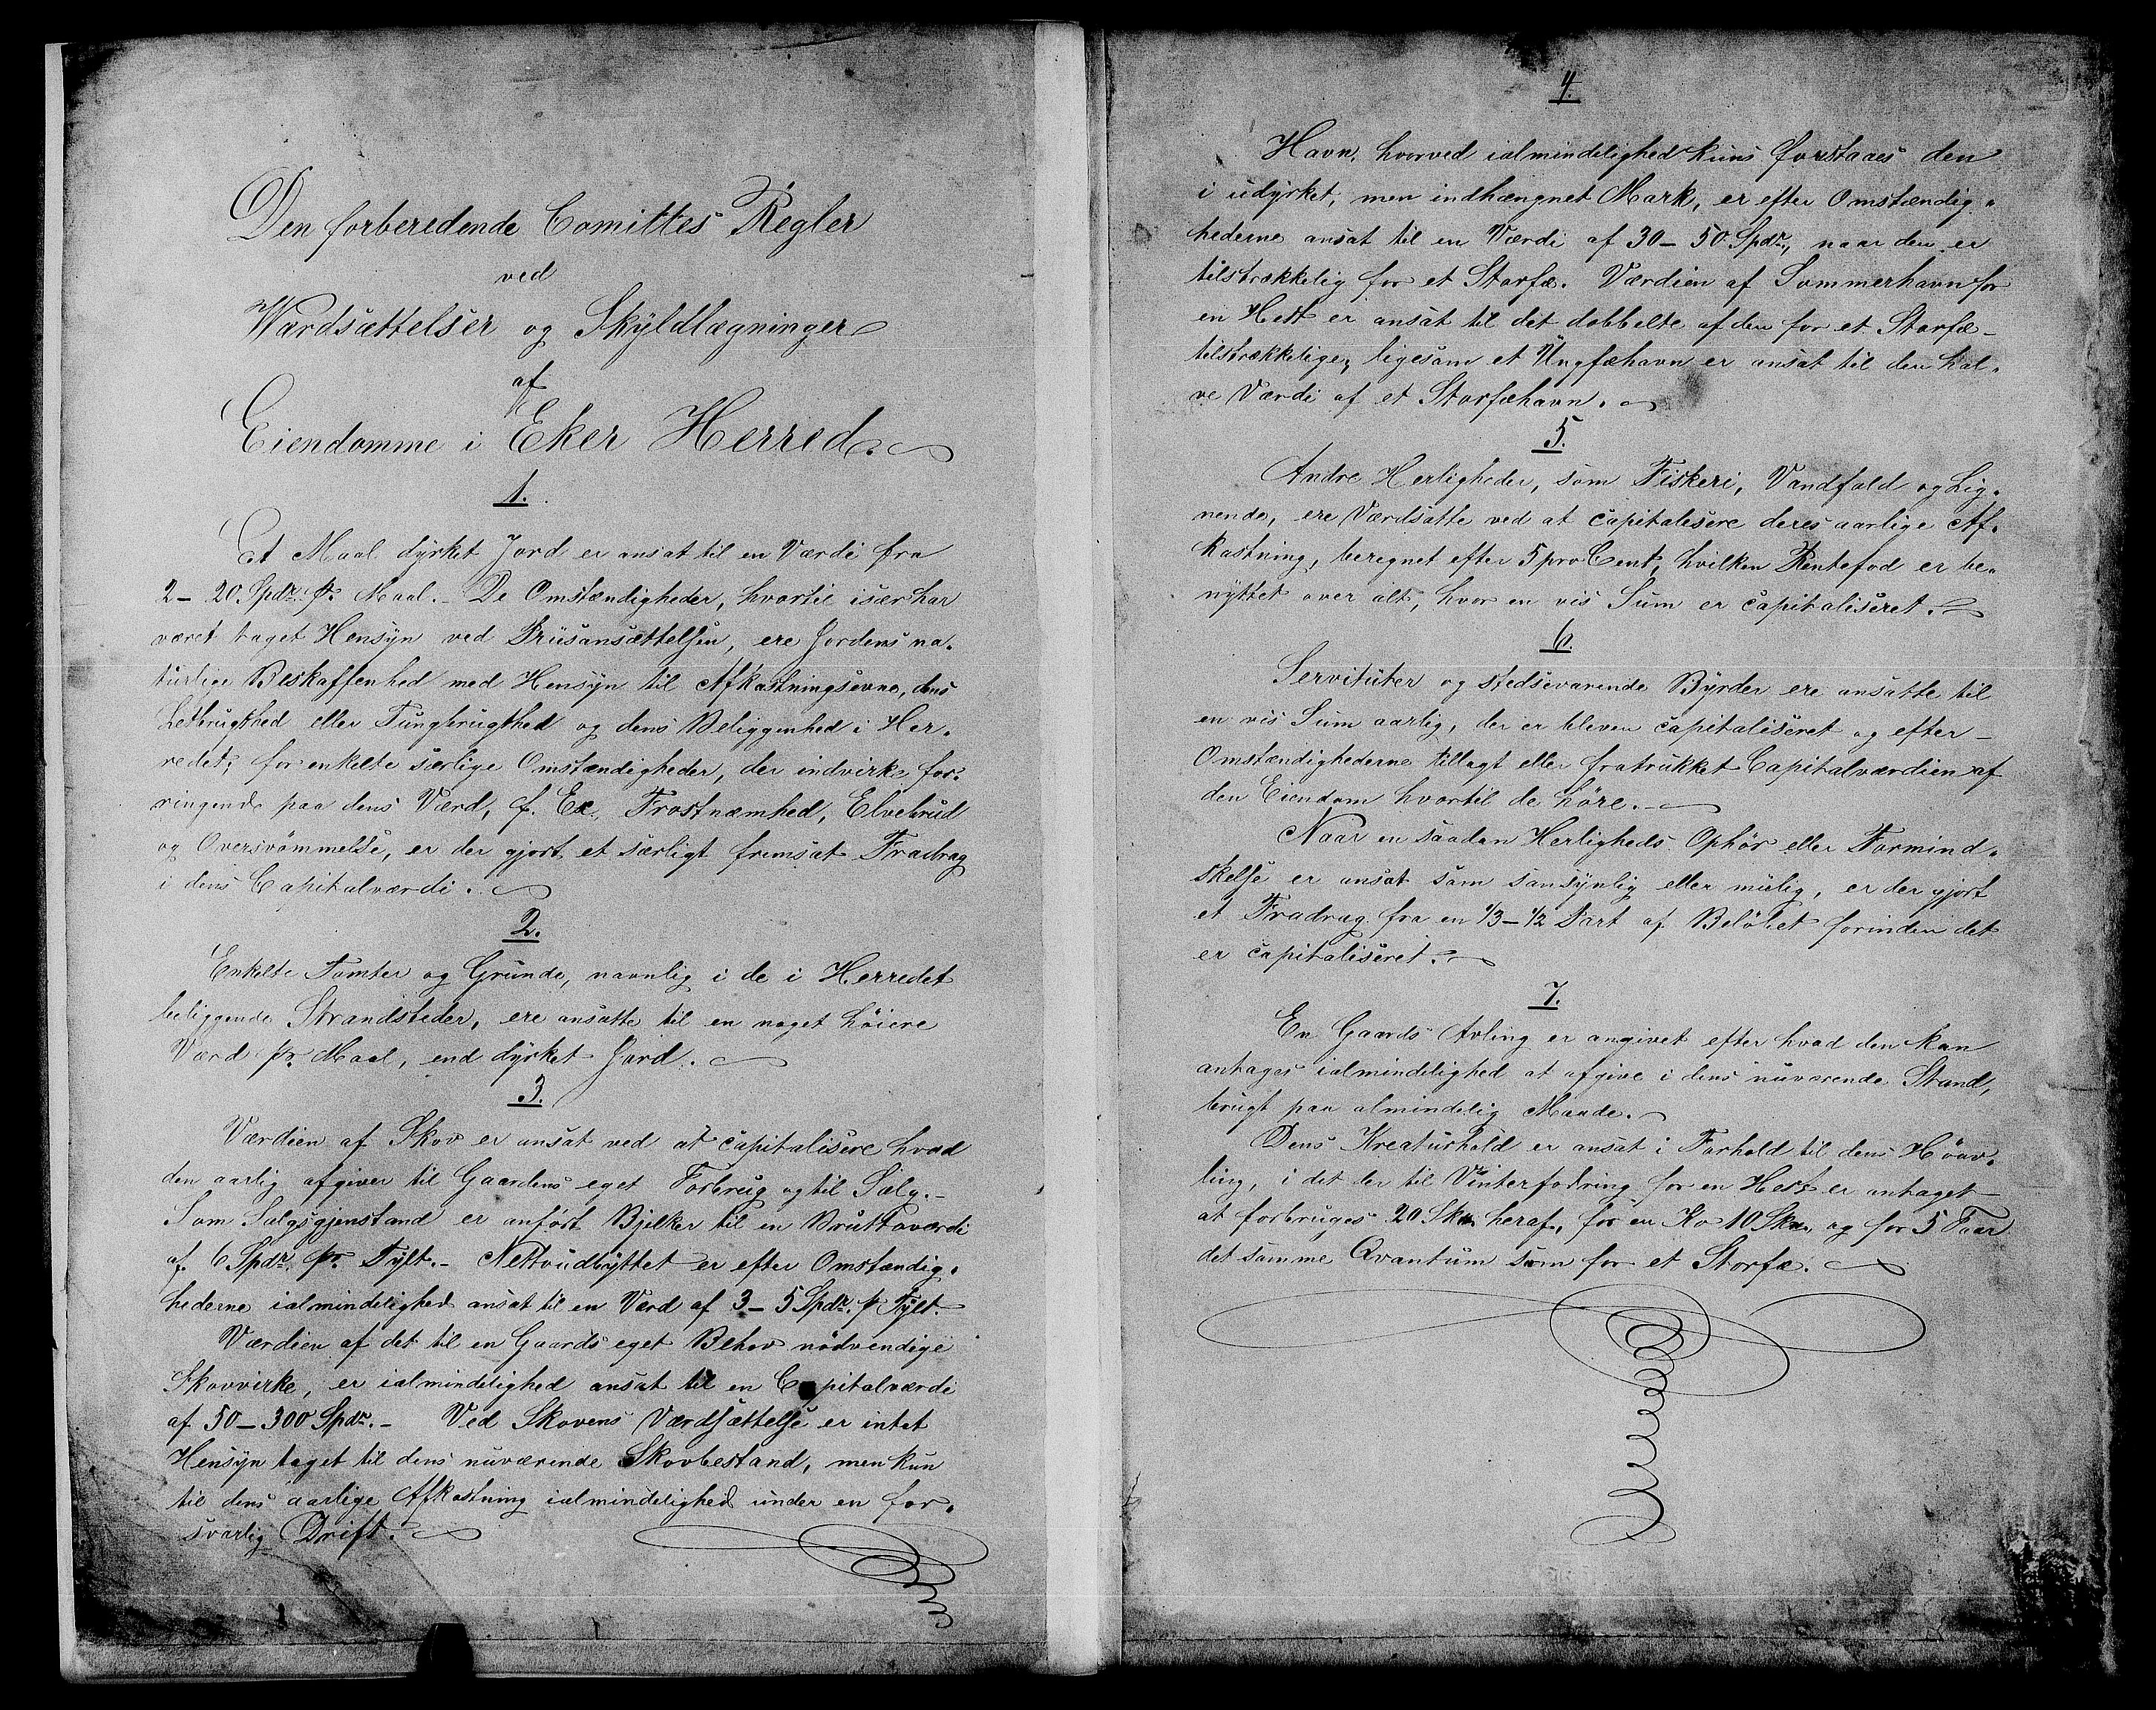 Den forberedende Comittes Regler
ved
Værdsættelser og Skyldlægninger
af
Eiendomme i Eker Herred.
1.
Et Maal dyrket Jord er ansat til en Værdi fra
2 – 20 Spdr. pr. Maal. – De Omstændigheder, hvortil især har
været taget Hensyn ved Priisansættelsen, ere Jordens na-
turlige Beskaffenhed med Hensyn til Afkastningsevne, dens
Letbrugthed eller Tungbrugthed og dens Beliggenhed i Her-
redet; for enkelte særlige Omstændigheder, der indvirke for-
ringende paa dens Værd, f. Ex. Frostnæmhed, Elvebrud
og Oversvømmelse, er der gjort et særligt fremsat Fradrag
i dens Capitalværdi.
2.
Enkelte Tomter og Grunde, navnlig i de i Herredet
beliggende Strandsteder, ere ansatte til en noget høiere
Værd pr. Maal, end dyrket Jord.
3.
Værdien af Skov er ansat ved at capitalisere hvad
den aarlig afgiver til Gaardens eget Forbrug og til Salg. –
Som Salgsgjenstand er anført Bjelker til en Bruttoværdi
af 6 Spdr. pr. Tylt. – Nettoudbyttet er efter Omstændig-
hederne ialmindelighed ansat til en Værd af 3 – 5 Spdr. p Tylt.
Værdien af det til en Gaards eget Behov nødvendige
Skovvirke, er ialmindelighed ansat til en Capitalværdi
af 50 – 300 Spdr. – Ved Skovens Værdsættelse er intet
Hensyn taget til dens nuværende Skovbestand, men kun
til dens aarlige Afkastning ialmindelighed under en for-
svarlig Drift.
4.
Havn, hvorved ialmindelighed kuns forstaaes den
i udyrket, men indhængnet Mark, er efter Omstændig-
hederne ansat til en Værdi af 30 – 50 Spdr., naar den er
tilstrækkelig for et Storfæ. Værdien af Sommerhavn for
en Hest er ansat til det dobbelte af den for et Storfæ
tilstrækkelige, ligesom et Ungfæhavn er ansat til den hal-
ve Værdi af et Storfæhavn.
5.
Andre Herligheder, som Fiskeri, Vandfald og Lig-
nende, ere Værdsatte ved at capitalisere deres aarlige Af-
kastning, beregnet efter 5 pro Cent, hvilken Rentefod er be-
nyttet over alt, hvor en vis Sum er capitaliseret.
6.
Servituter og stedsevarende Byrder ere ansatte til
en vis Sum aarlig, der er bleven capitaliseret og efter
Omstændighederne tillagt eller fratrukket Capitalværdien af
den Eiendom hvortil de høre. –
Naar en saadan Herligheds Ophør eller Formind-
skelse er ansat som sansynlig eller mulig, er der gjort
et Fradrag fra en 1/3 – 1/2 Part af Beløbet forinden det
er capitaliseret.
7.
En Gaards Avling er angivet efter hvad den kan
antages ialmindelighed at afgive i dens nuværende Stand,
brugt paa almindelig Maade.
Dens Kreaturhold er ansat i Forhold til dens Høav-
ling, i det der til Vinterfodring for en Hest er antaget
at forbruges 20 Sk heraf, for en Ko 10 Sk og for 5 Faar
det samme Qvantum som for et Storfæ.